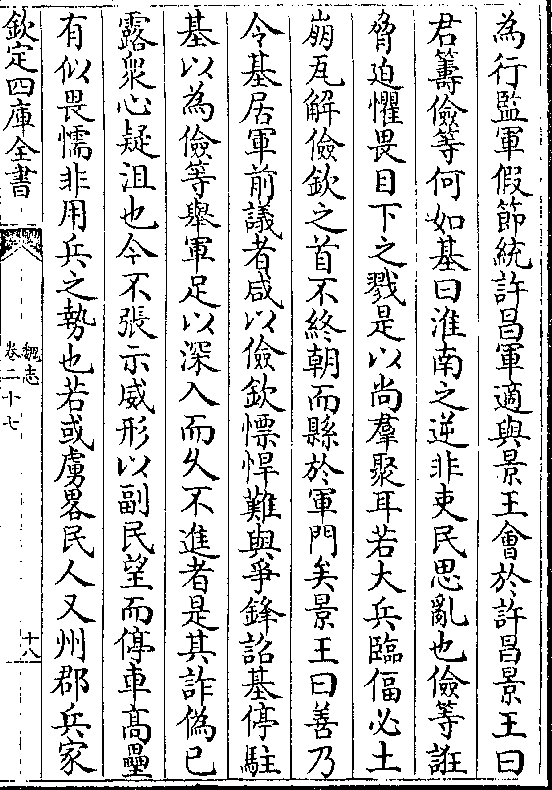 為行監軍假節統許昌軍適與景王會於許昌景王曰
君籌儉等何如基曰淮南之逆非吏民思亂也儉等誑
脅迫懼畏目下之戮是以尚羣聚耳若大兵臨偪必土
崩瓦解儉欽之首不終朝而縣於軍門矣景王曰善乃
令基居軍前議者咸以儉欽慓悍難與爭鋒詔基停駐
基以為儉等舉軍足以深入而久不進者是其詐偽已
露衆心疑沮也今不張示威形以副民望而停車高壘
有似畏懦非用兵之勢也若或虜畧民人又州郡兵家
欽定四庫全書
魏志
卷二十七
十八